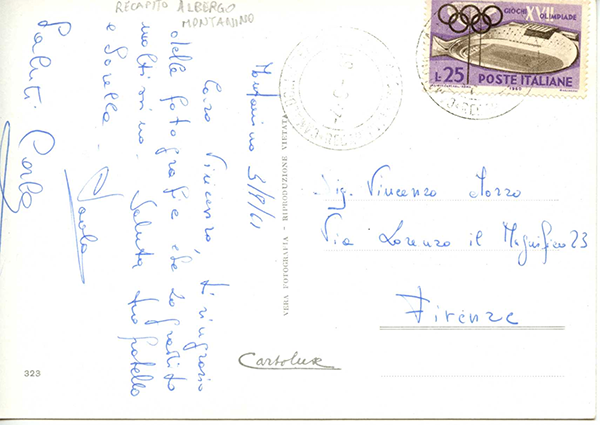 RECAPITO ALBERGO
MONTANINO
Montanino 3/8/61
Caro Vincenzo, ti ringrazio
delle fotografie che ho gradito
moltissimo. Saluta tuo fratello
e sorella.
Paola
Saluti Carla
323
VERA FOTOGRAFIA - RIPRODUZIONE VIETATA
GIOCHI XVII OLIMPIADE
L.25 POSTE ITALIANE
1960
Sig. Vincenzo
Via Lorenzo il Magnifico 23
Firenze
Cartolux